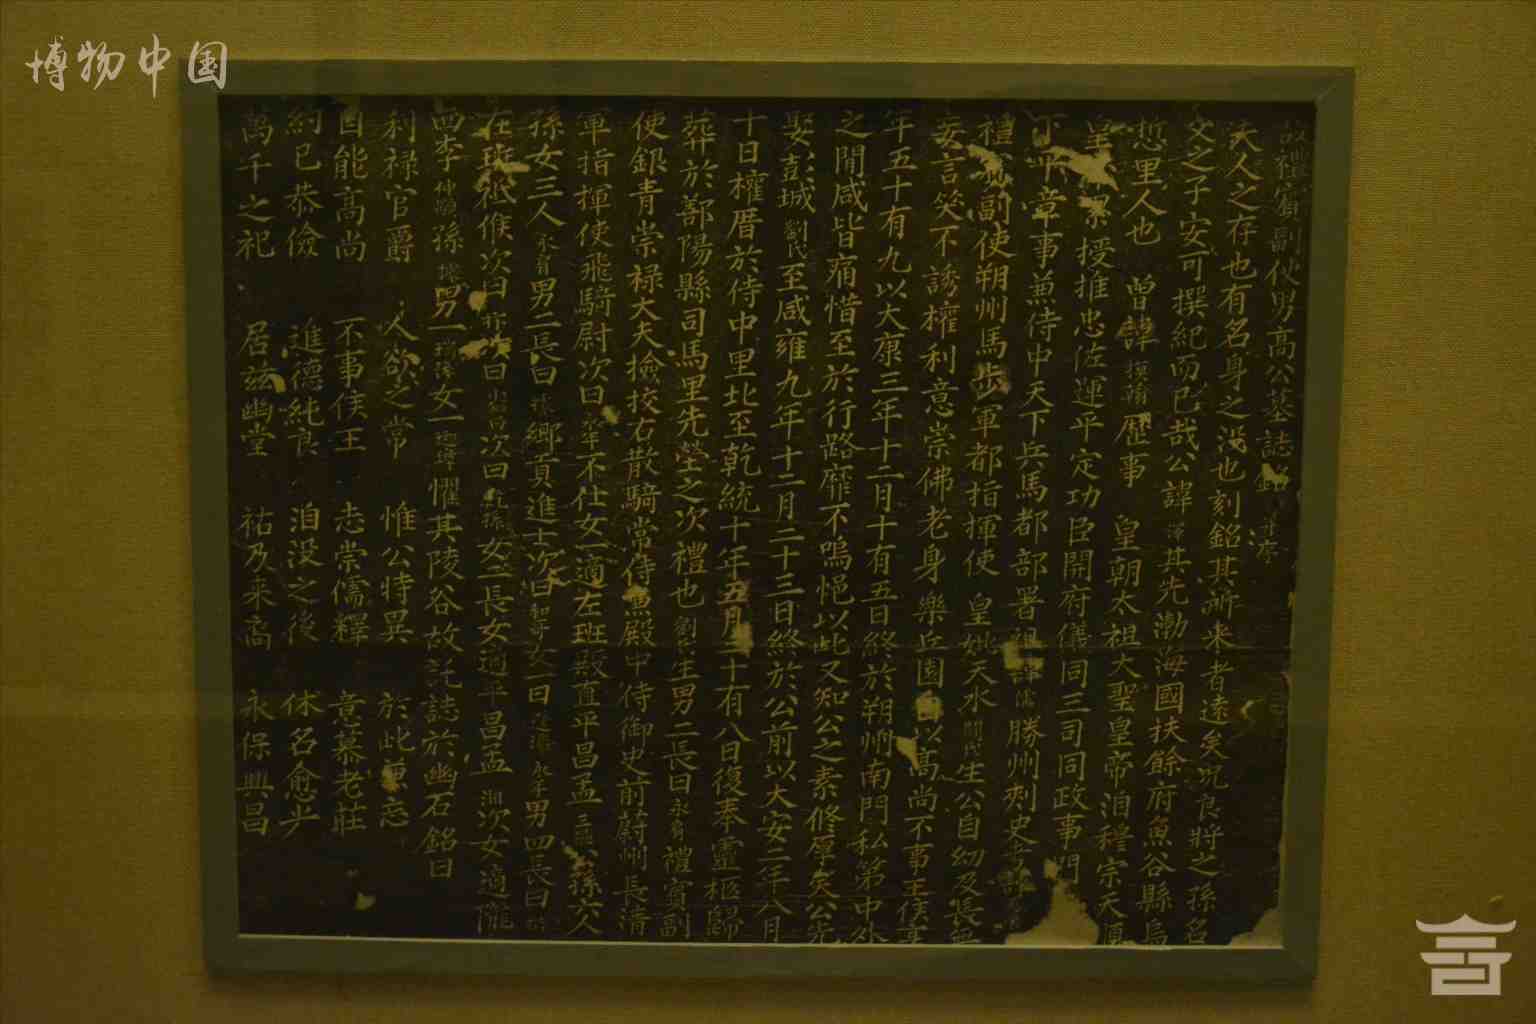 博物中国
故禮賓副使男高公墓誌銘 并序
夫人之存也有名身之沒也刻銘其所來者遠矣况良將之孫名
父之子安可撰紀而已哉公諱澤其先渤海國扶餘府魚谷縣烏
悊里人也 曾諱模翰歷事 皇朝太祖大聖皇帝洎穆宗天順
皇帝累授推忠佐運平定功臣開府儀同三司同政事門
下平章事兼侍中天下兵馬都部署祖諱儒勝州刺史
禮賓副使朔州馬步軍都指揮使 皇妣天水閻氏生公自幼及長無
妄言笑不誘權利意崇佛老身樂丘園自以高尚不事王侯享
年五十有九以大康三年十二月十有五日終於朔州南門私第中外
之閒咸皆痛惜至於行路靡不嗚悒以此又知公之素修厚矣公先
娶彭城劉氏至咸雍九年十二月二十三日終於公前以大安二年八月
十日權厝於侍中里北至乾統十年五月二十有八日復奉靈柩歸
葬於鄯陽縣司馬里先塋之次禮也劉氏生男二長曰永肩禮賓副
使銀青崇禄大夫撿挍右散騎常侍兼殿中侍御史前蔚州長清
軍指揮使飛騎尉次曰永年不仕女一適左班殿直平昌孟三公孫六人
孫女三人永肩男二長曰 鄉貢進士次曰 女一曰 永年男四長曰
在班祗候次曰 次曰 次曰 女二長女適平昌孟湘次女適隴
西李 孫 男一 女一 懼其陵谷故託誌於幽石銘曰
利禄官爵 人欲之常 惟公特異 於此兼忘
自能高尚 不事侯王 志崇儒釋 意慕老莊
約已恭儉 進德純良 洎没之後 休名愈光
萬千之祀 居兹幽堂 祐乃来裔 永保興昌